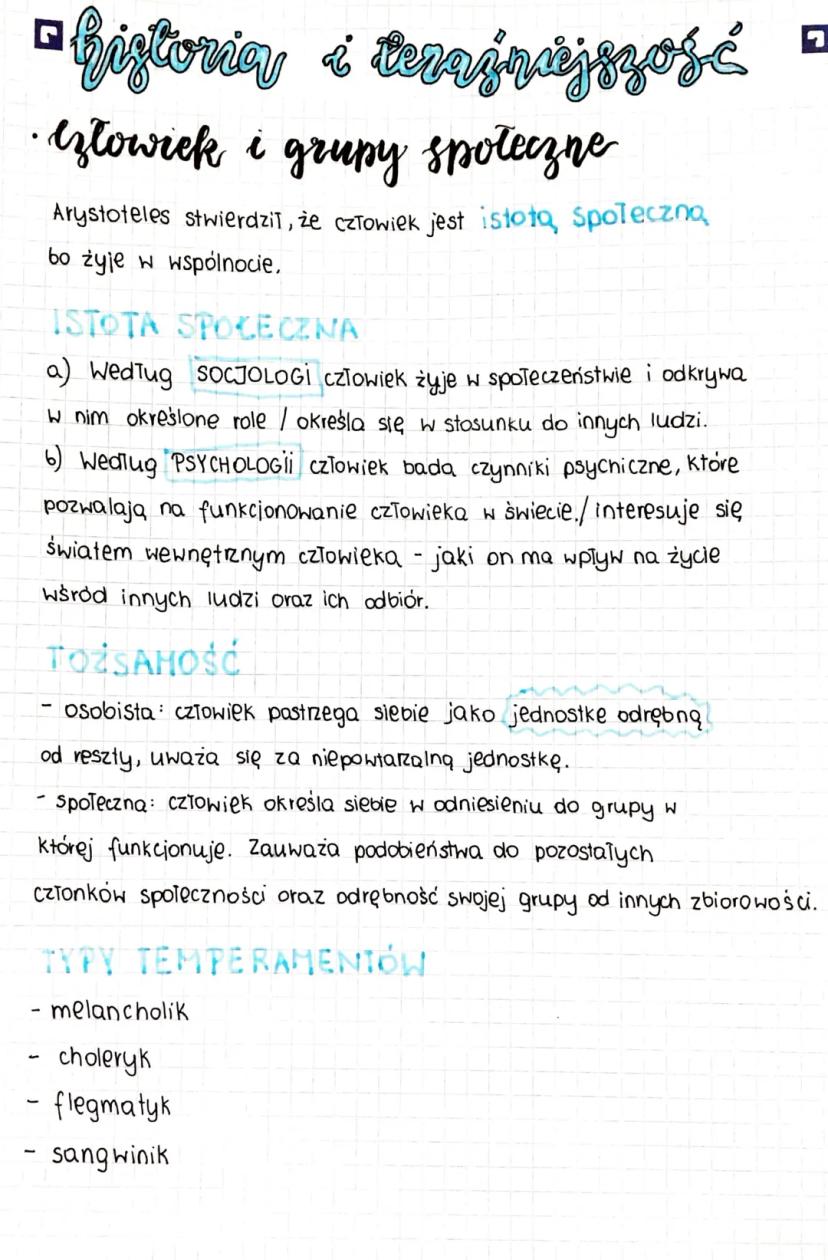 historia i teraźniejszość
· człowiek i grupy społeczne
Arystoteles stwierdził, że człowiek jest istotą społeczną
bo żyje w wspólnocie.
ISTOTA SPOŁECZNA
a) Według SOCJOLOGi człowiek żyje w społeczeństwie i odkrywa
w nim określone role / określa się w stosunku do innych ludzi.
b) Według PSYCHOLOGii człowiek bada czynniki psychiczne, które
pozwalają na funkcjonowanie człowieka w świecie./ interesuje się
światem wewnętrznym człowieka - jaki on ma wpływ na życie
wśród innych ludzi oraz ich odbiór.
TOŻSAMOŚĆ
- osobista: człowiek postrzega siebie jako jednostke odrębną
od reszty, uważa się za niepowtarzalną jednostkę.
- społeczna: człowiek określa siebie w odniesieniu do grupy w
której funkcjonuje. Zauważa podobieństwa do pozostałych
członków społeczności oraz odrębność swojej grupy od innych zbiorowości.
TYPY TEMPERAMENTÓW
- melancholik
- choleryk
- flegmatyk
- sangwinik